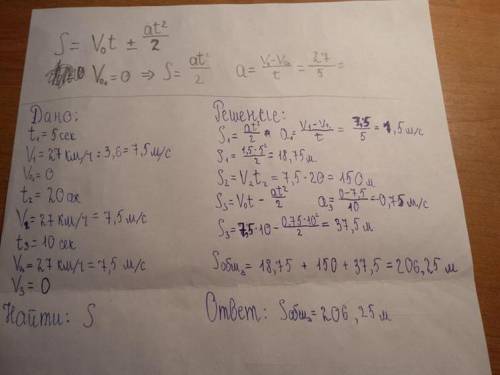 S = V₀t ± at²/2
V₀₁ = 0 ⇒ S = at²/2   a = (V₁-V₀₁)/t = 27/5 =
Дано:
t₁ = 5 сек
V₁ = 27 км/ч = 3,6 = 7,5 м/с
V₀₁ = 0
t₂ = 20 сек
V₂ = 27 км/ч = 7,5 м/с
t₃ = 10 сек
V₀₃ = 27 км/ч = 7,5 м/с
V₃ = 0
Найти: S
Решение:
S₁ = at²/2   a₁ = (V₁-V₀₁)/t = 7,5/5 = 1,5 м/с
S₁ = 1,5·5²/2 = 18,75 м
S₂ = V₂t₂ = 7,5 · 20 = 150 м
S₃ = V₀t - at²/2   a₃ = (0-7,5)/10 = -0,75 м/с
S₃ = 7,5·10 - 0,75·10²/2 = 37,5 м
Sобщ = 18,75 + 150 + 37,5 = 206,25 м
Ответ: Sобщ = 206,25 м